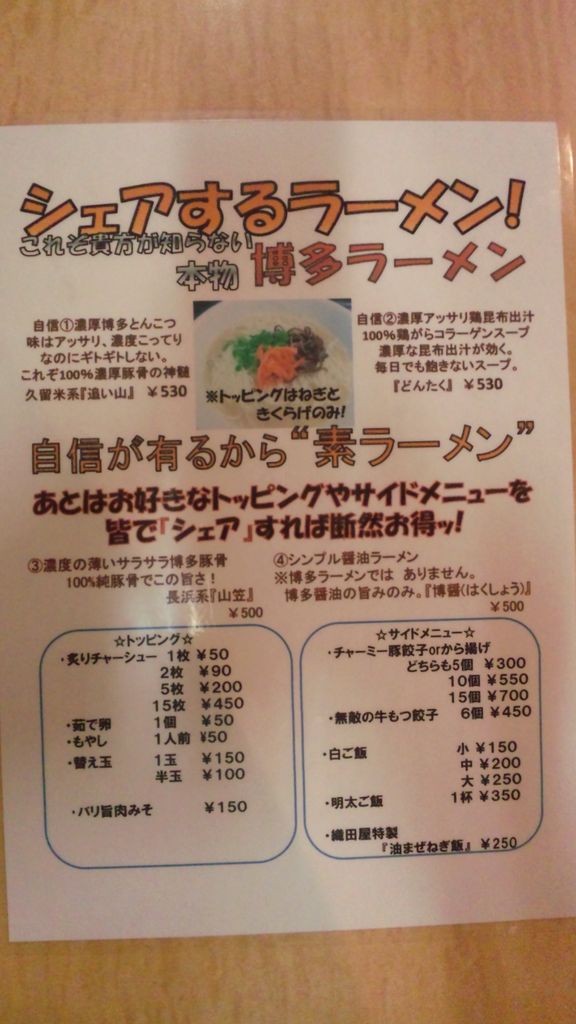 シェアするラーメン!
これぞ貴方が知らない
本物 博多ラーメン
自信①濃厚博多とんこつ
味はアッサリ、濃度こってり
なのにギトギトしない。
これぞ100%濃厚豚骨の神髄
久留米系『追い山』 ¥530
※トッピングはねぎと
きくらげのみ!
自信②濃厚アッサリ鶏昆布出汁
100%鶏がらコラーゲンスープ
濃厚な昆布出汁が効く。
毎日でも飽きないスープ。
『どんたく』 ¥530
自信が有るから“素ラーメン”
あとはお好きなトッピングやサイドメニューを
皆で「シェア」すれば断然お得ッ!
③濃度の薄いサラサラ博多豚骨
100%純豚骨でこの旨さ!
長浜系『山笠』
¥500
④シンプル醤油ラーメン
※博多ラーメンでは ありません。
博多醤油の旨みのみ。『博醤(はくしょう)』
¥500
☆トッピング☆
・炙りチャーシュー 1枚 ¥50
2枚 ¥90
5枚 ¥200
15枚 ¥450
・茹で卵 1個 ¥50
・もやし 1人前 ¥50
・替え玉 1玉 ¥150
半玉 ¥100
・バリ旨肉みそ ¥150
☆サイドメニュー☆
・チャーミー豚餃子orから揚げ
どちらも5個 ¥300
10個 ¥550
15個 ¥700
・無敵の牛もつ餃子 6個 ¥450
・白ご飯 小 ¥150
中 ¥200
大 ¥250
・明太ご飯 1杯 ¥350
・織田屋特製
『油まぜねぎ飯』 ¥250